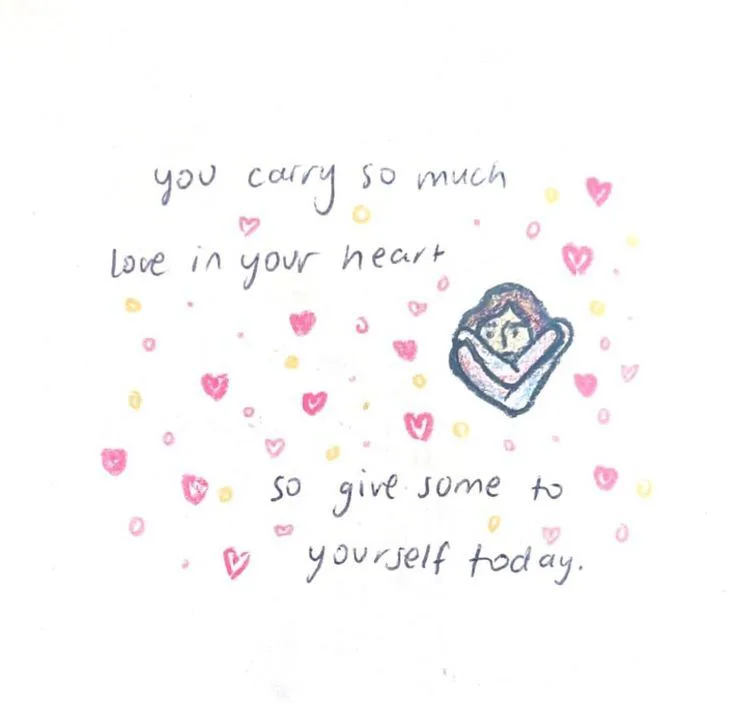 you carry so much
love in your heart
so give some to
yourself today.